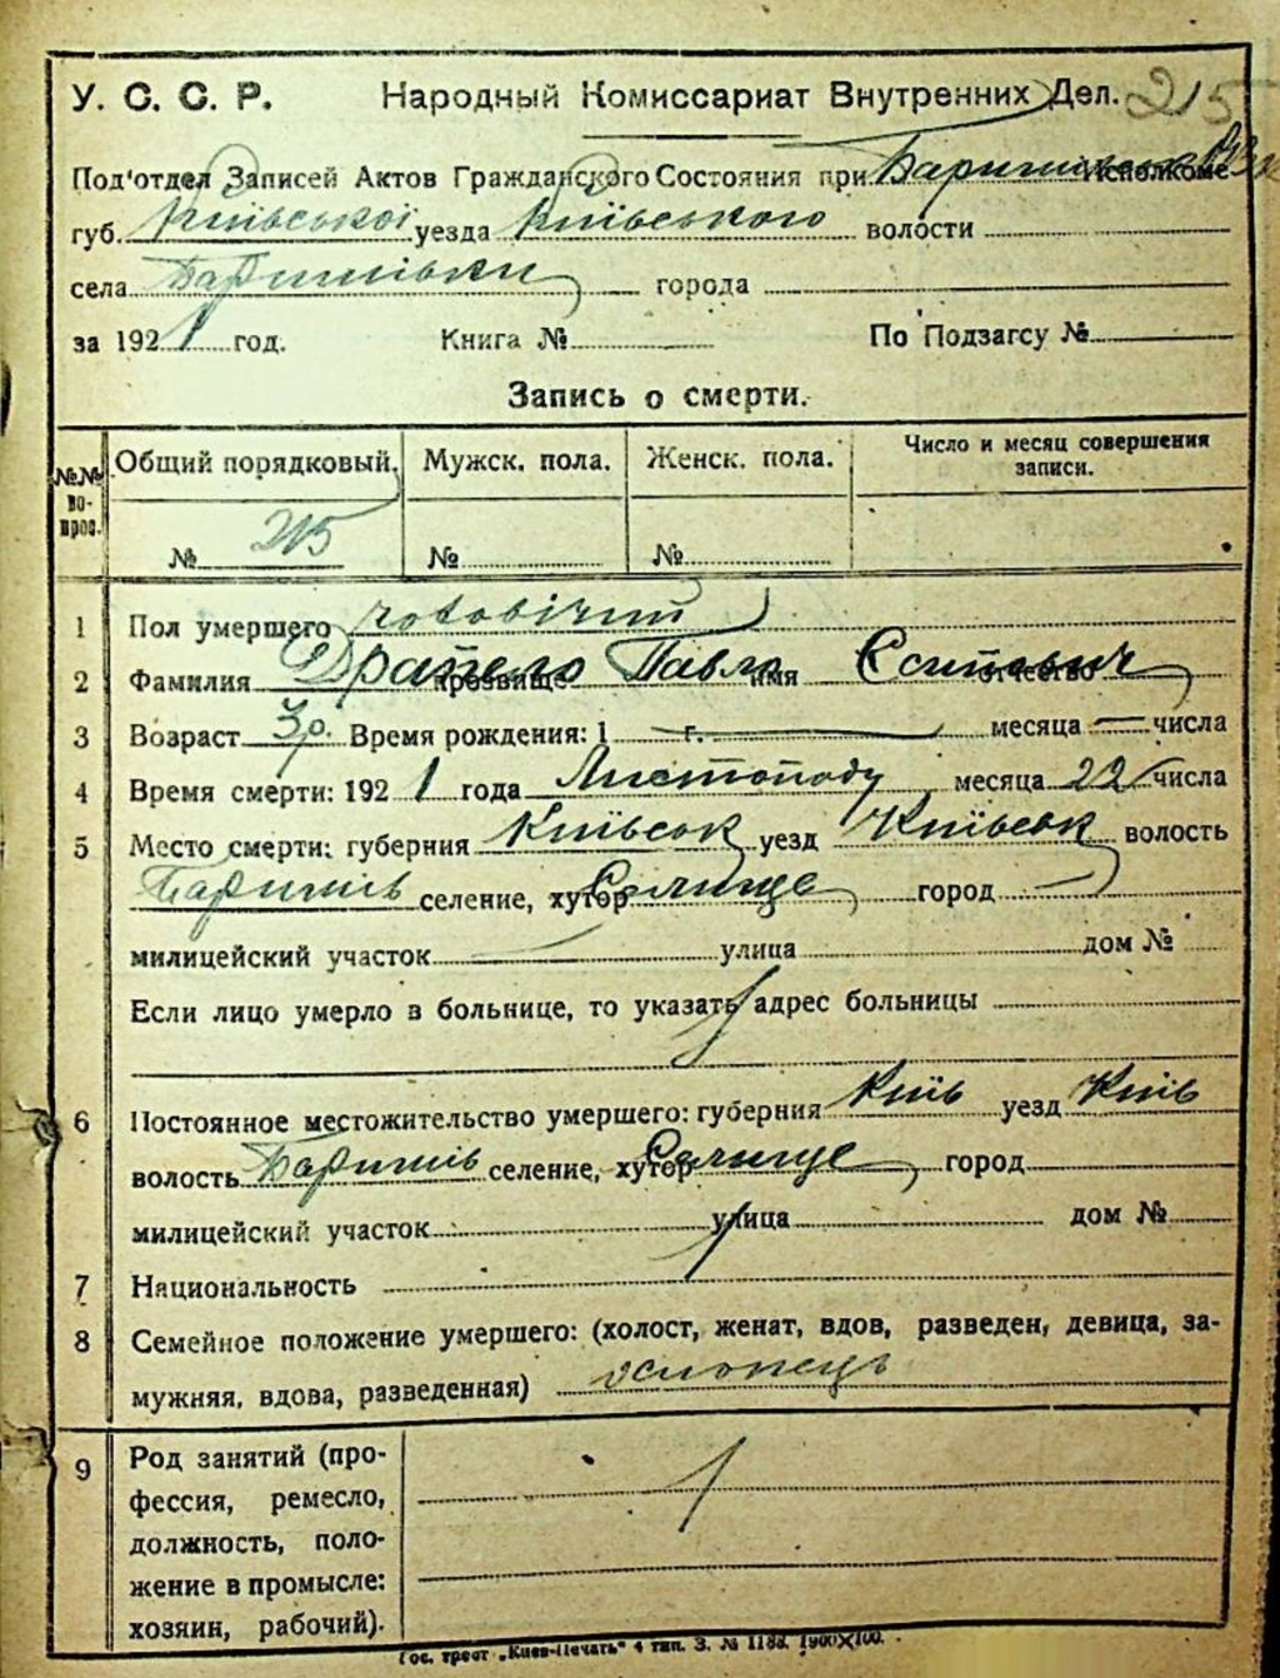 У. С. С. Р. Народный Комиссариат Внутренних Дел. 215
Под'отдел Записей Актов Гражданского Состояния при Исполкоме
губ. Київської уезда Київського волости
села Баришівки города
за 1921 год. Книга № По Подзагсу №
Запись о смерти.
№№ вопрос. Общий порядковый. Мужск. пола. Женск. пола. Число и месяц совершения записи.
№ 215 № №
1 Пол умершего чоловічий
2 Фамилия прозвище Павло имя отчество
3 Возраст 3р. Время рождения: 1 г. месяца числа
4 Время смерти: 1921 года Листопаду месяца 22 числа
5 Место смерти: губерния Київськ уезд Київськ волость
Баришів селение, хутор Селище город
милицейский участок улица дом №
Если лицо умерло в больнице, то указать адрес больницы
6 Постоянное местожительство умершего: губерния Київ уезд Київ
волость Баришів селение, хутор Селище город
милицейский участок улица дом №
7 Национальность
8 Семейное положение умершего: (холост, женат, вдов, разведен, девица, за-
мужняя, вдова, разведенная) хлопець
9 Род занятий (про-
фессия, ремесло,
должность, поло-
жение в промысле:
хозяин, рабочий).
Гос. трест „Киев-Печать" 4 тип. З. № 1188. 1900×100.